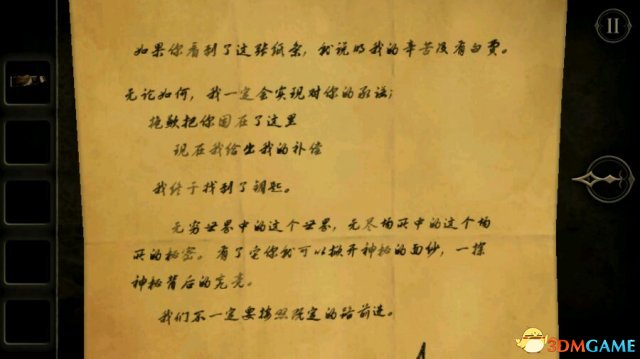 如果你看到了这张纸条，就说明我的辛苦没有白费。
无论如何，我一定会实现对你的承诺；
抱歉把你困在了这里
现在我给出我的补偿
我终于找到了钥匙。
无穷世界中的这个世界，无尽场所中的这个场
所的秘密。有了它你就可以掀开神秘的面纱，一探
神秘背后的究竟。
我们不一定要按照既定的路前进。
A
3DMGAME